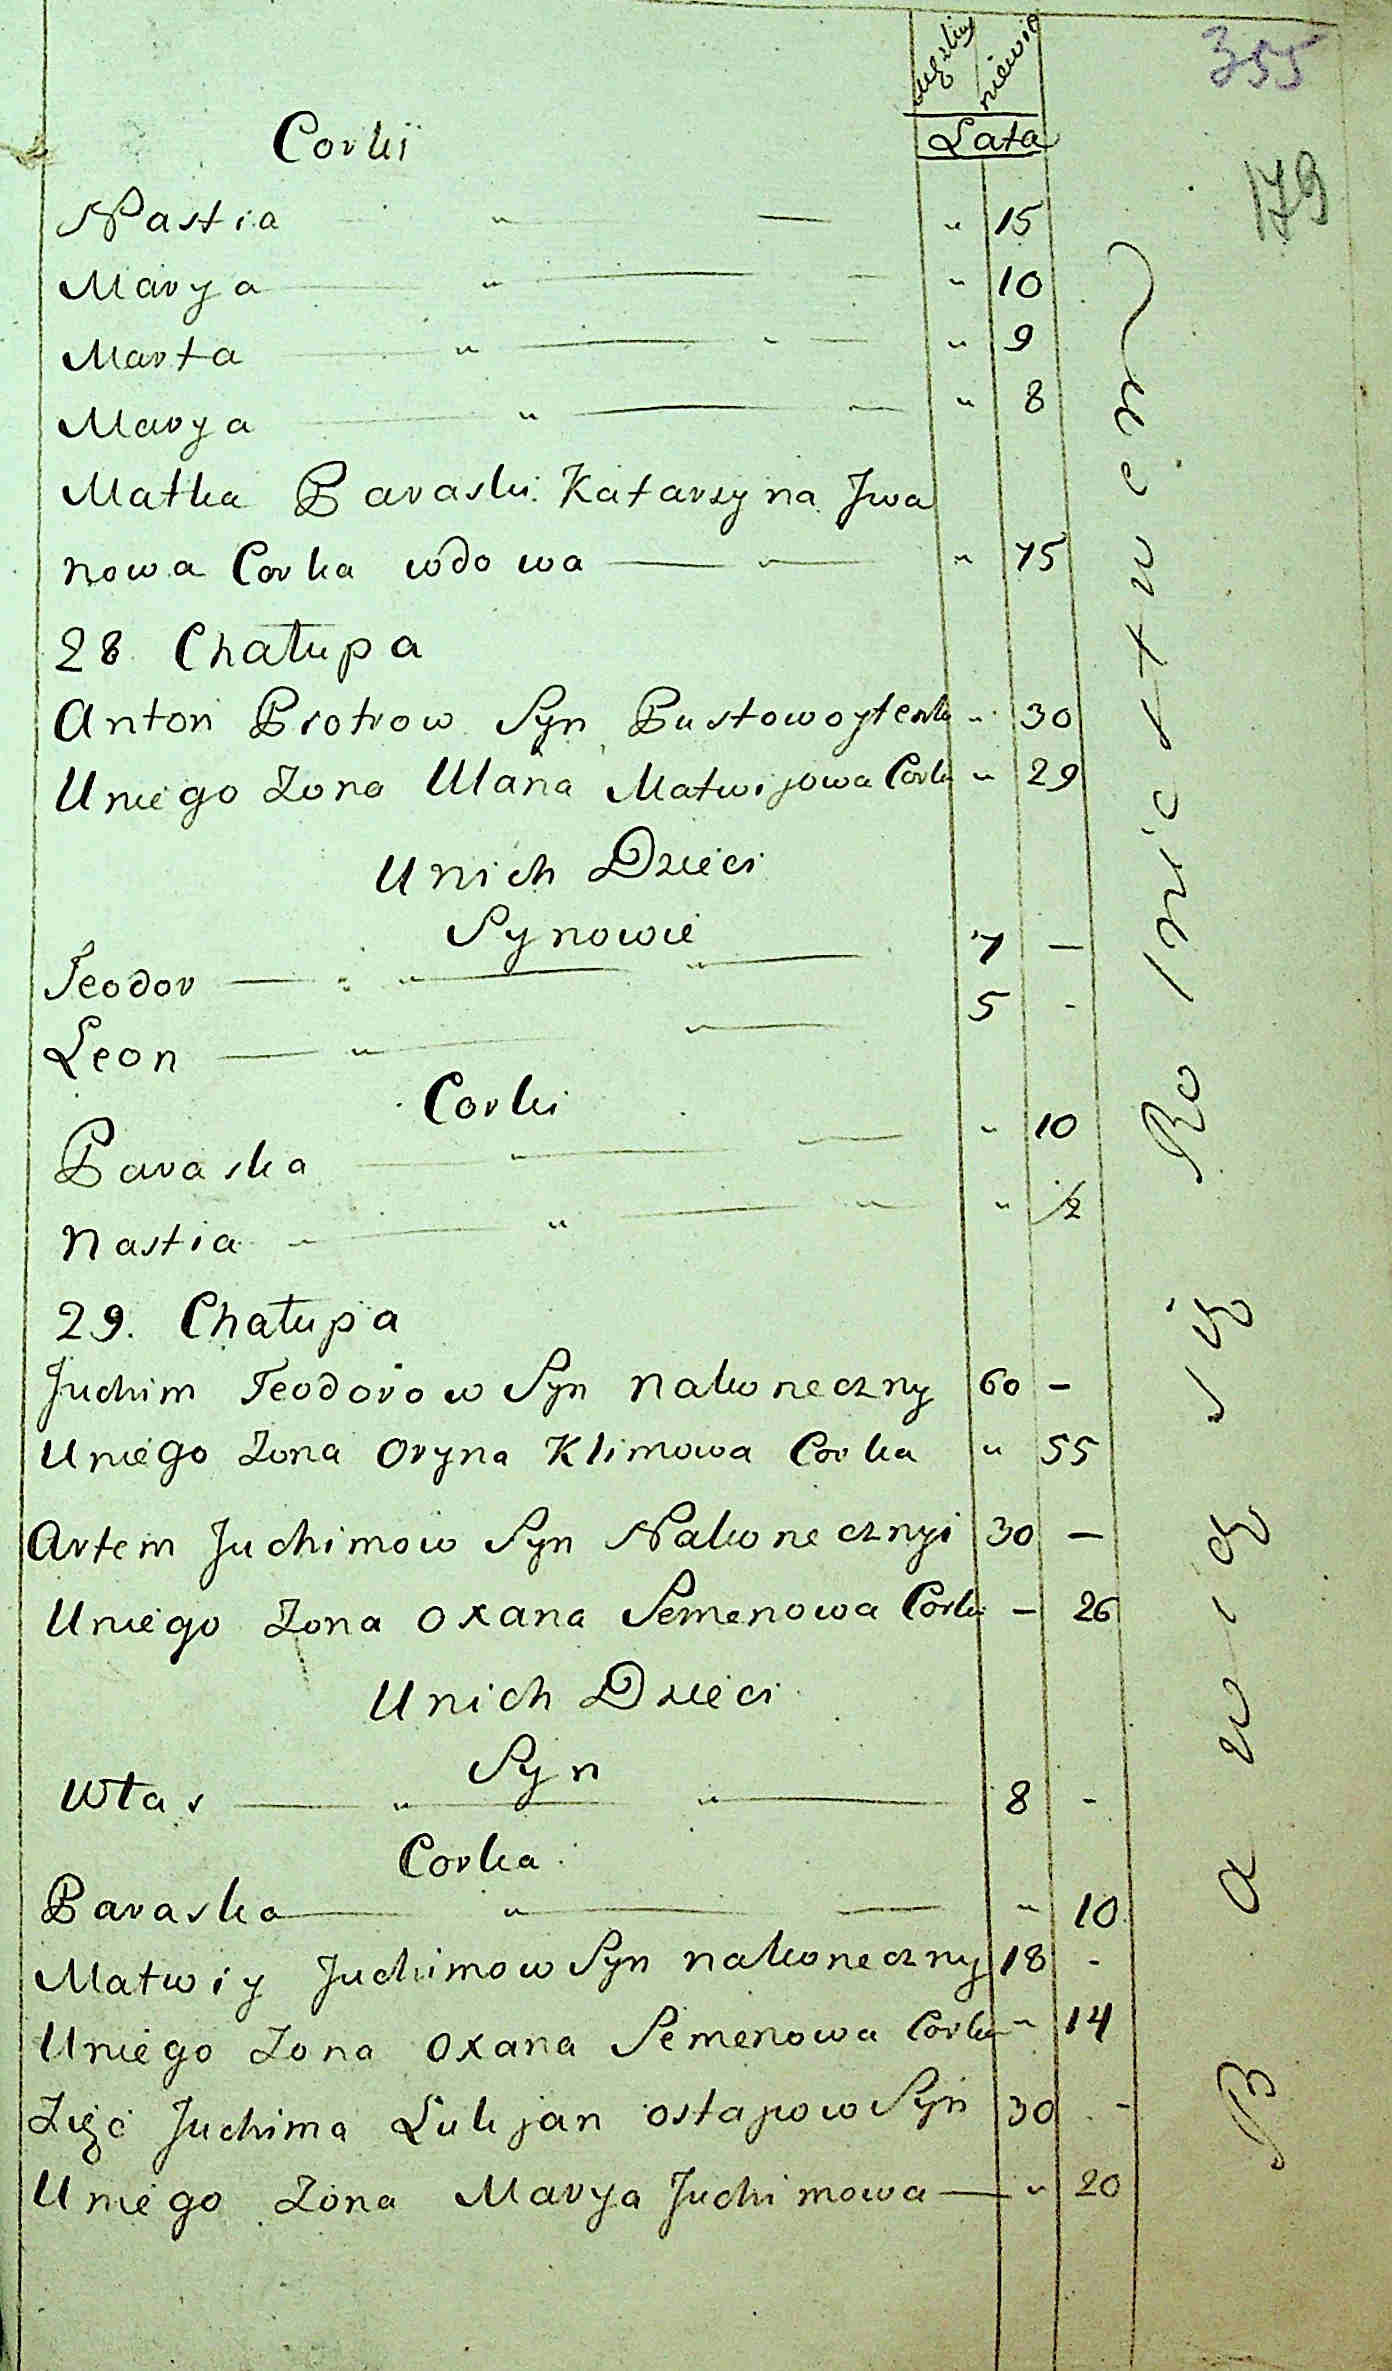 355
179
mężkie niewie
Lata
Corki
Nastia " — " 15
Marya " — " 10
Marta " — " 9
Marya " — " 8
Matka Paraski Katarzyna Iwa
nowa Corka wdowa — " 75
28 Chałupa
Anton Piotrow Syn Pustowoytenko " 30
Uniego Zona Ulana Matwijowa Corka " 29
Unich Dzieci
Synowie
Teodor — " — 7 —
Leon — " — 5 -
Corki
Paraska — " — " 10
Nastia — " — " 1/2
29. Chałupa
Juchim Teodorow Syn Nakoneczny 60 —
Uniego Zona Oryna Klimowa Corka " 55
Artem Juchimow Syn Nakonecznyi 30 —
Uniego Zona Oxana Semenowa Corka — 26
Unich Dzieci
Syn
Włas — " — 8 -
Corka
Paraska — " — " 10
Matwiy Juchimow Syn Nakoneczny 18 -
Uniego Zona Oxana Semenowa Corka " 14
Zięć Juchima Lukjan Ostapow Syn 30 -
Uniego Zona Marya Juchimowa — " 20
Bawią się Rolnictwem